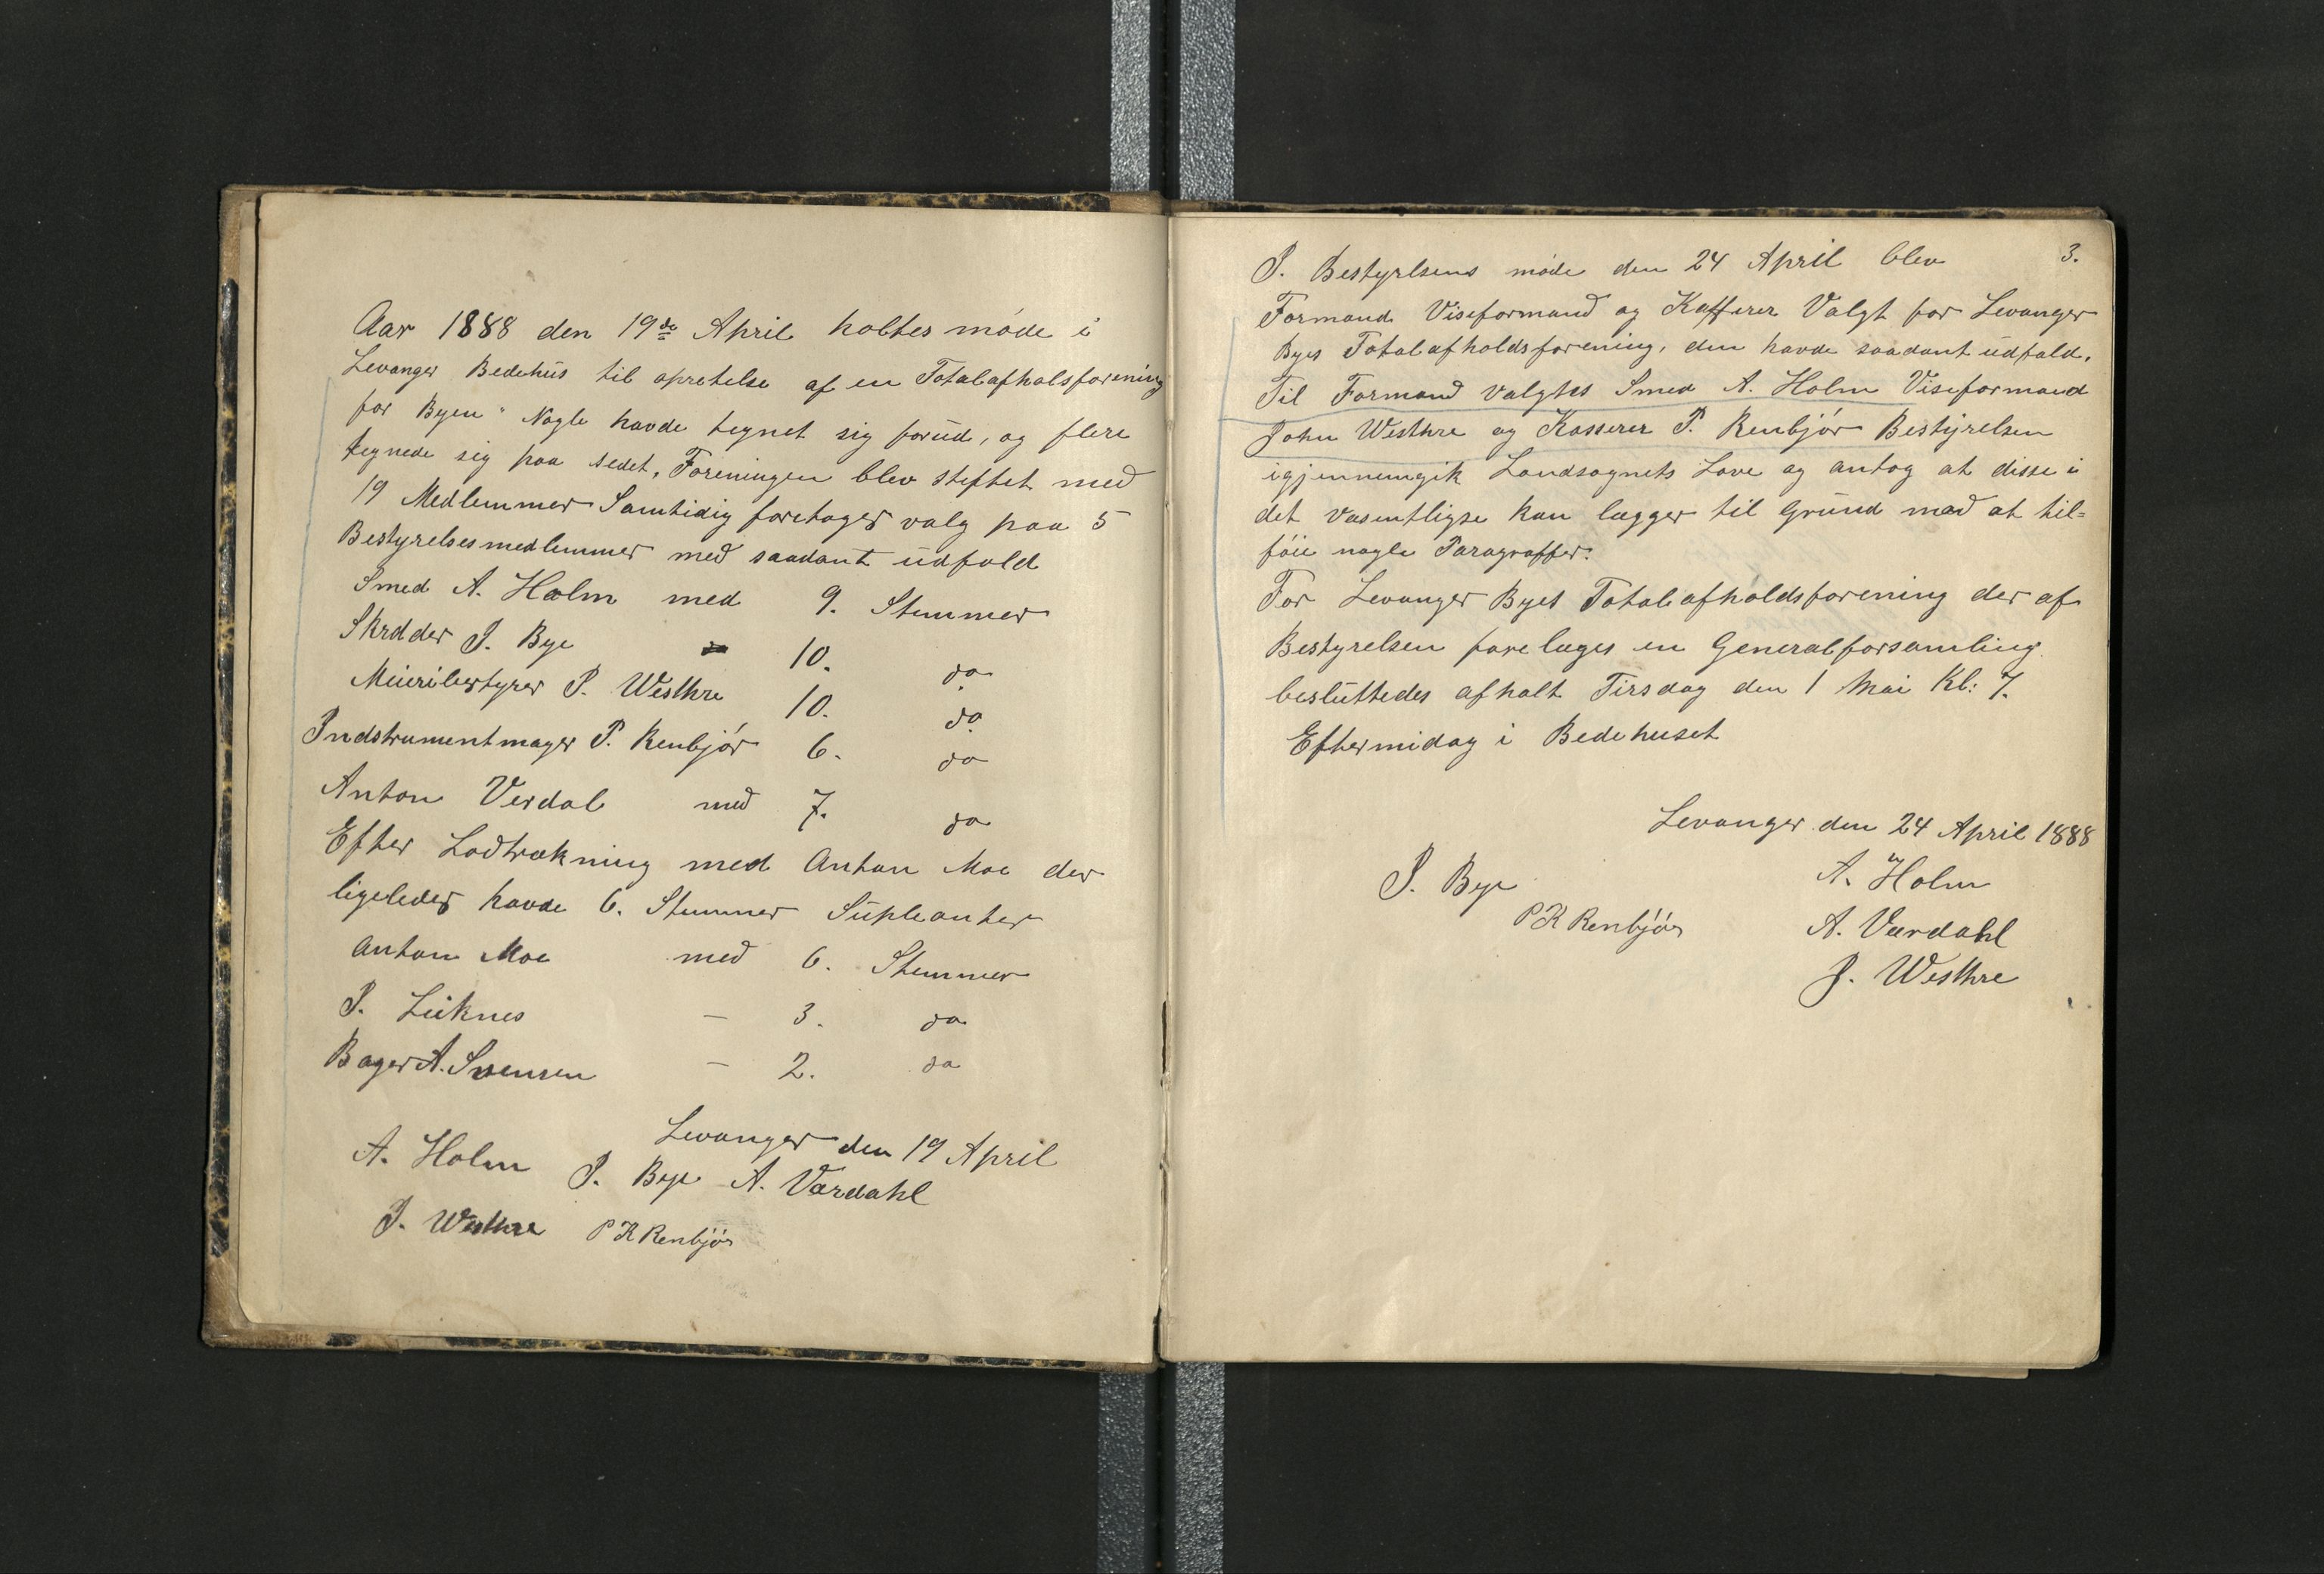 Aar 1888 den 19de April holtes møde i
Levanger Bedehús til opretelse af en Totalafholsforening
for Byen" Nogle havde tegnet sig forud, og flere
tegnede sig paa sedet. Foreningen blev steftet med
19 Medlemmer Samtidig foretoges valg paa 5
Bestyrelsesmedlemmer med saadant udfald
Smed A. Holm med 9. Stemmer
Skrædder J. Bye 10. do
Meieribestyrer J. Westhre 10. do
Indstrumentmager P. Renbjør 6. do
Anton Verdal med 7. do
Efter Lodtrækning med Anton Moe der
ligeledes havde 6. Stemmer Súpleanter
Anton Moe med 6. Stemmer
P. Leiknes — 3. do
Bager A. Svensen — 2. do
Levanger den 19 April
A. Holm J. Bye A. Værdahl
J. Westhre P K Renbjør
3.
I. Bestyrlsens møde den 24 April blev
Formand Viseformand og Kasserer Valgt for Levanger
Byes Totalafholdsforening, den havde saadant udfald.
Til Formand valgtes Smed A. Holm Viseformand
John Westhre og Kasserer P. Renbjør Bestyrelsen
igjennemgik Landsognets Love og antog at disse i
det væsentligse kan lægges til Grúnd med at til=
føie nogle Paragraffer.
For Levanger Byes Totalafholdsforening der af
Bestyrelsen forelæges en Generalforsamling
beslúttedes afholt Tirsdag den 1 Mai Kl: 7.
Eftermidag i Bedehuset
Levanger den 24 April 1888
J. Bye A. Holm
P K Renbjør A. Værdahl
J. Westhre